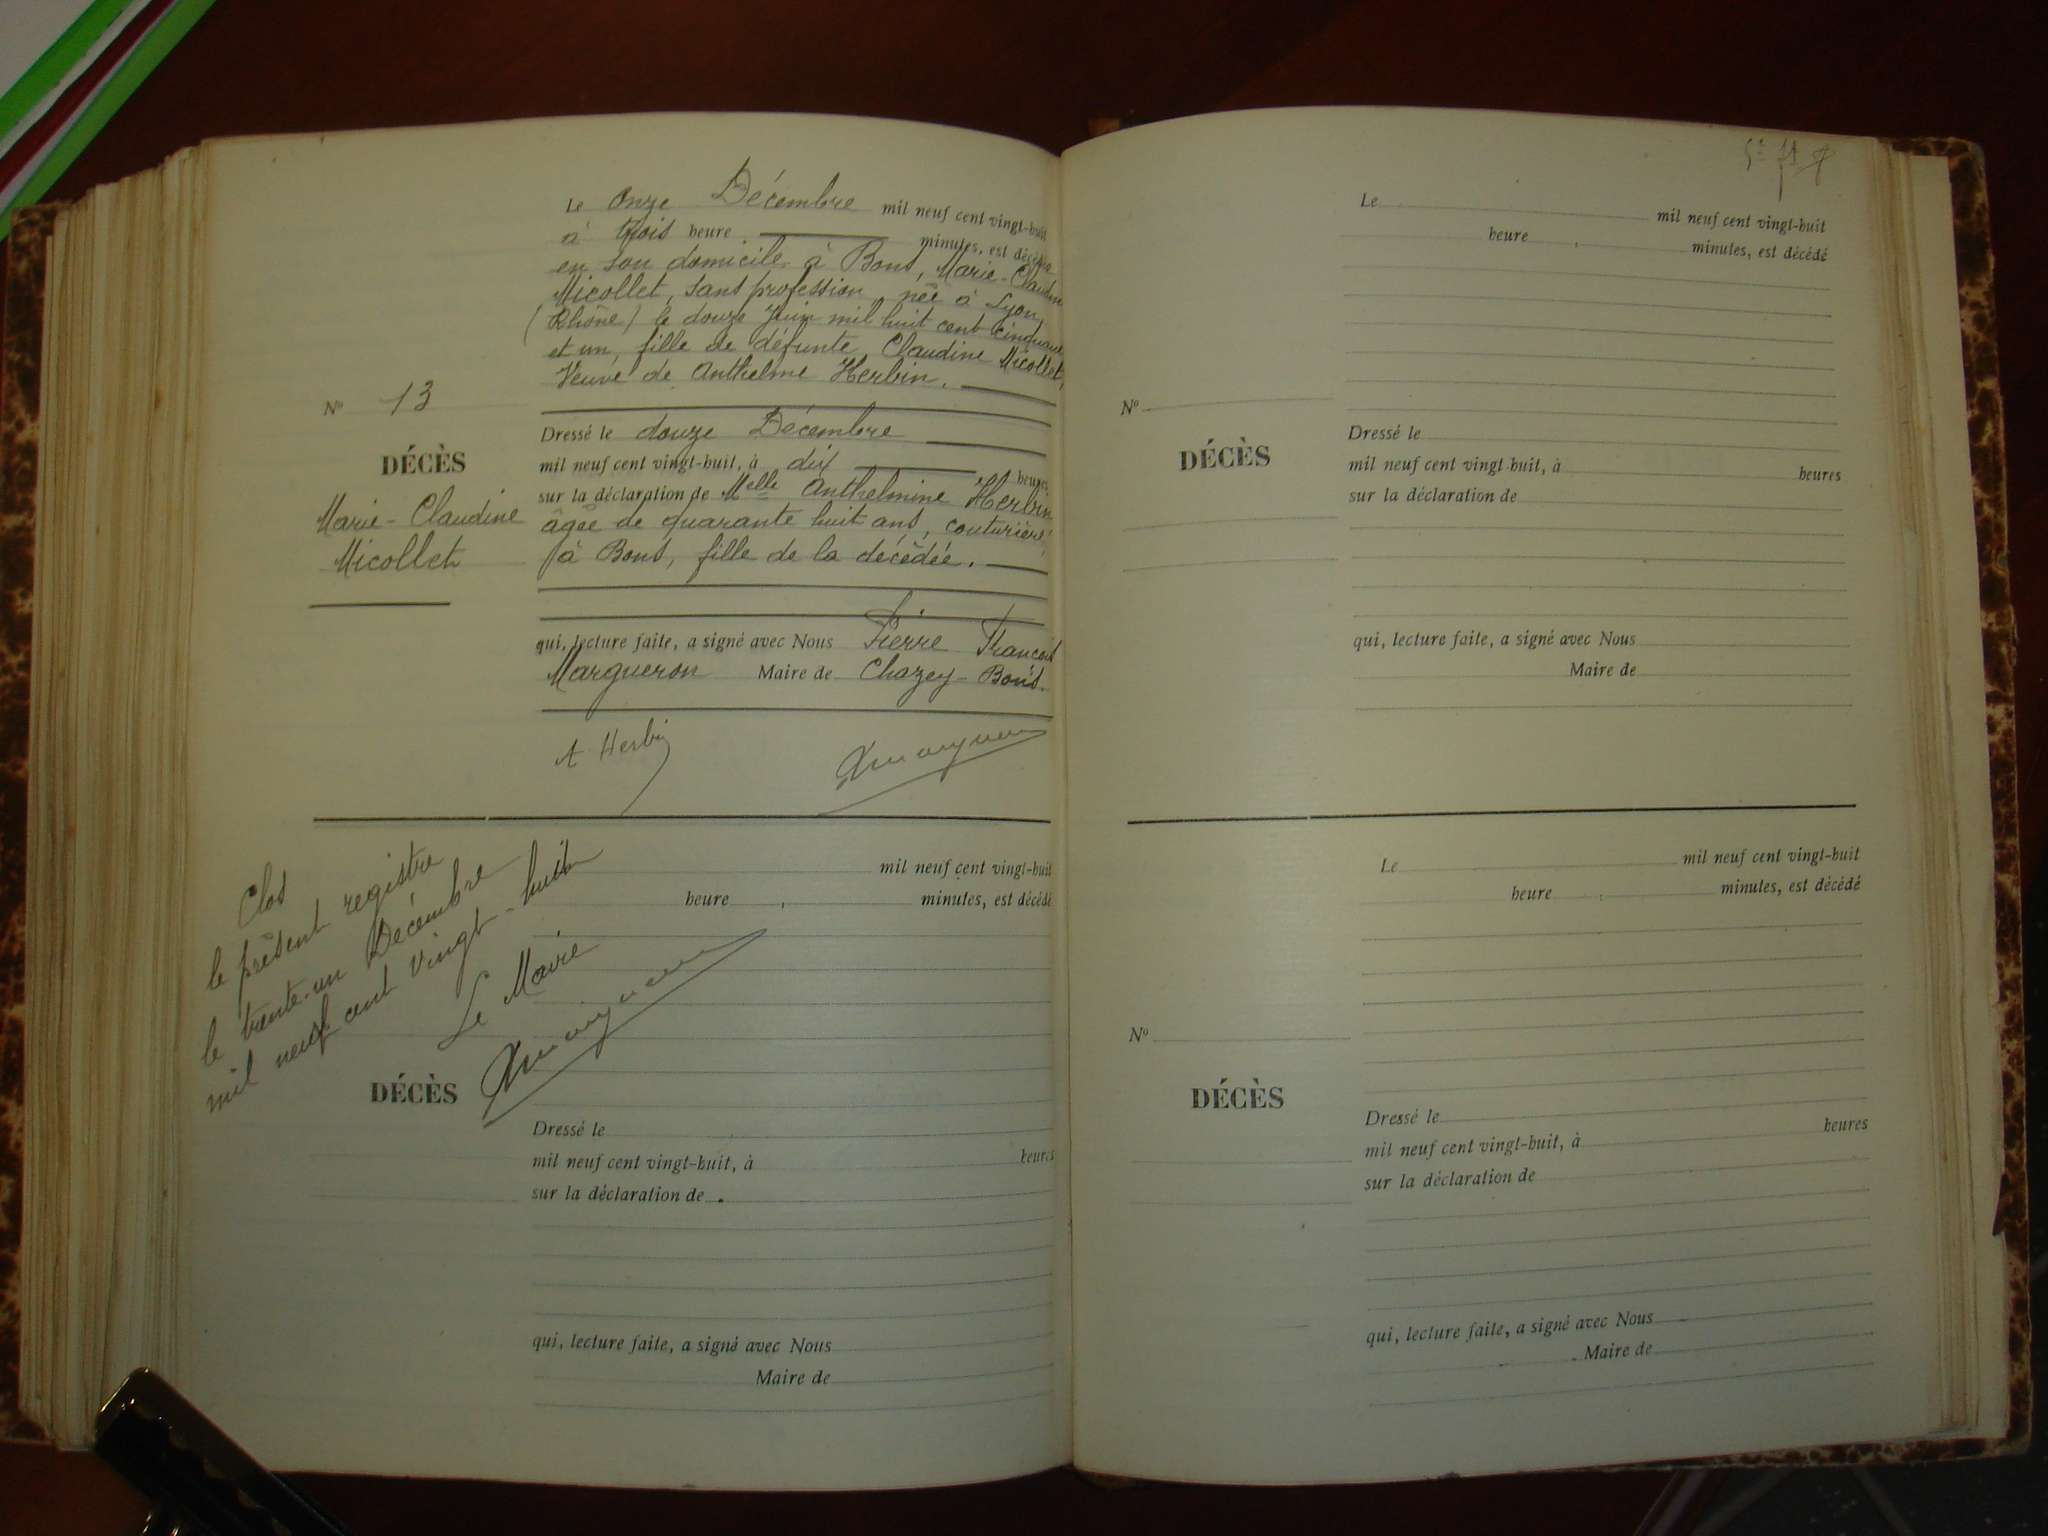 Le Onze Décembre mil neuf cent vingt-huit
à trois heure minutes, est décédée
en son domicile à Bons, Marie-Claudine
Micollet, sans profession, née à Lyon,
(Rhône) le douze Juin mil huit cent cinquante
et un, fille de défunte Claudine Micollet,
Veuve de Anthelme Herbin.
N° 13
DÉCÈS
Marie-Claudine
Micollet
Dressé le douze Décembre
mil neuf cent vingt-huit, à dix heures
sur la déclaration de Melle Anthelmine Herbin
âgée de quarante huit ans, couturière,
à Bons, fille de la décédée.
qui, lecture faite, a signé avec Nous Pierre François
Margueron Maire de Chazey-Bons.
A Herbin
Clos
le présent registre
le trente-un Décembre
mil neuf cent vingt-huit
Le Maire
mil neuf cent vingt-huit
heure , minutes, est décédé
DÉCÈS
Dressé le
mil neuf cent vingt-huit, à heures
sur la déclaration de
qui, lecture faite, a signé avec Nous
Maire de
Le mil neuf cent vingt-huit
heure , minutes, est décédé
N°
DÉCÈS
Dressé le
mil neuf cent vingt-huit, à heures
sur la déclaration de
qui, lecture faite, a signé avec Nous
Maire de
Le mil neuf cent vingt-huit
heure , minutes, est décédé
N°
DÉCÈS
Dressé le
mil neuf cent vingt-huit, à heures
sur la déclaration de
qui, lecture faite, a signé avec Nous
Maire de